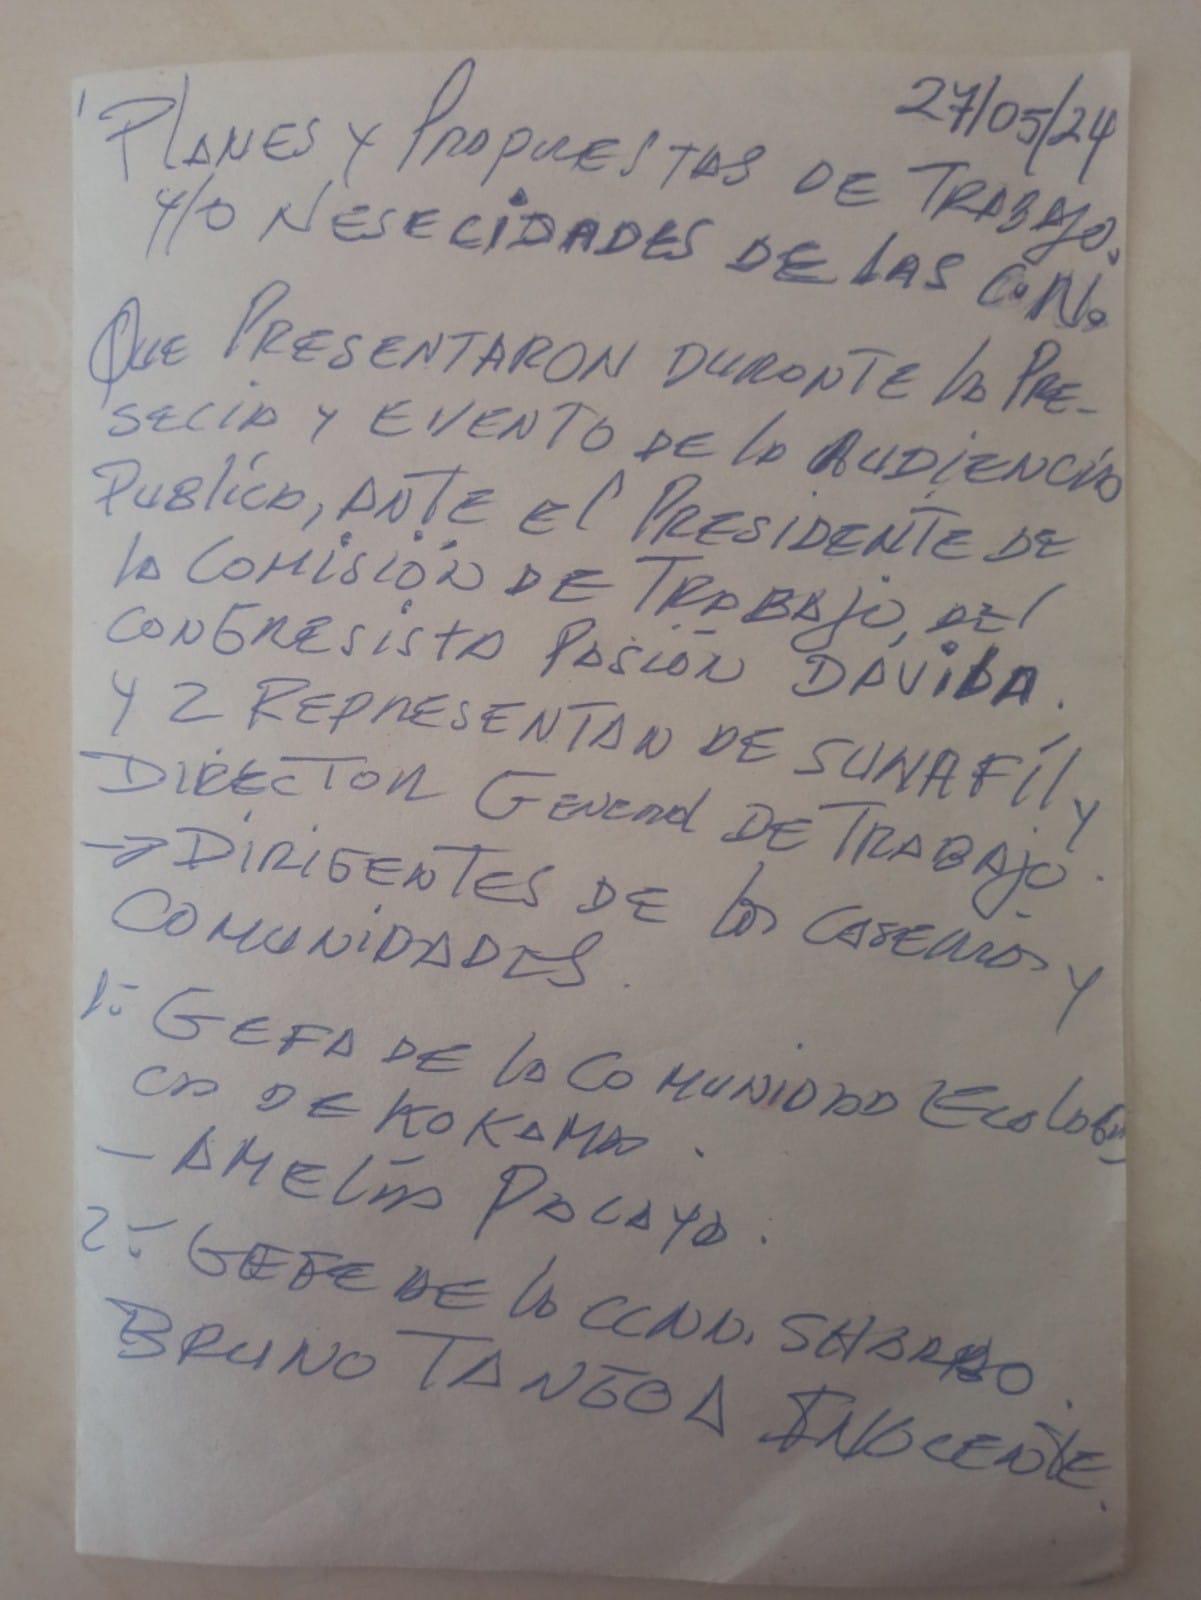 27/05/24
PLANES Y PROPUESTAS DE TRABAJO.
Y/O NESECIDADES DE LAS C.N.
QUE PRESENTARON DURANTE LA PRE-
SECIA Y EVENTO DE LA AUDIENCIA
PUBLÍCA, ANTE EL PRESIDENTE DE
LA COMISIÓN DE TRABAJO, DEL
CONGRESISTA PASIÓN DÁVILA.
Y 2 REPRESENTAN DE SUNAFÍL, Y
DIRECTOR GENERAL DE TRABAJO.
→ DIRIGENTES DE LOS CASERIOS Y
COMUNIDADES.
1:- GEFA DE LA COMUNIDAD ECOLOGI
CA DE KOKAMA.
- AMELIA PACAYA.
2:- GEFE DE LA CCNN.
BRUNO TANGOA INOCENTE.